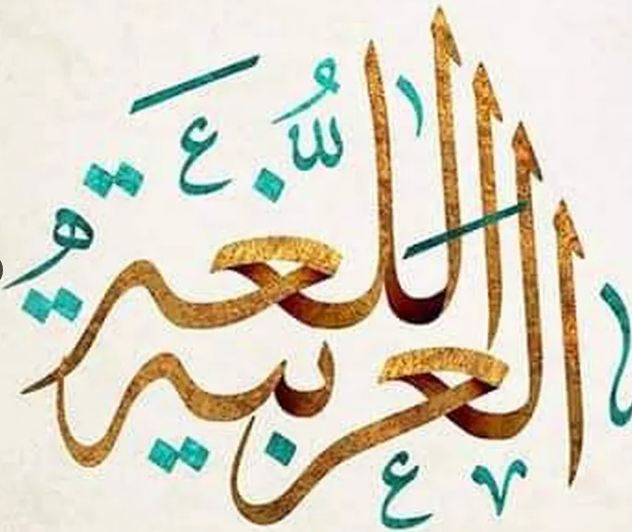 اللُّغَة
العَربية